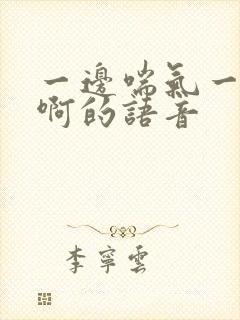 一邊喘氣一
啊的語音
李寧雲